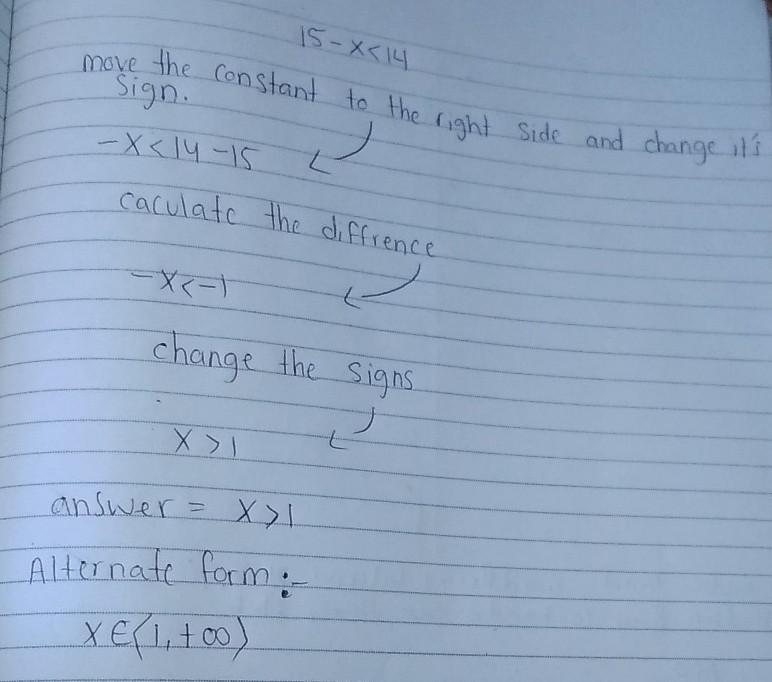 15-x<14
move the constant to the right side and change it's
sign.
-x<14-15
caculate the diffrence
-x<-1
change the signs
x>1
answer = x>1
Alternate form:-
x∈(1,+∞)